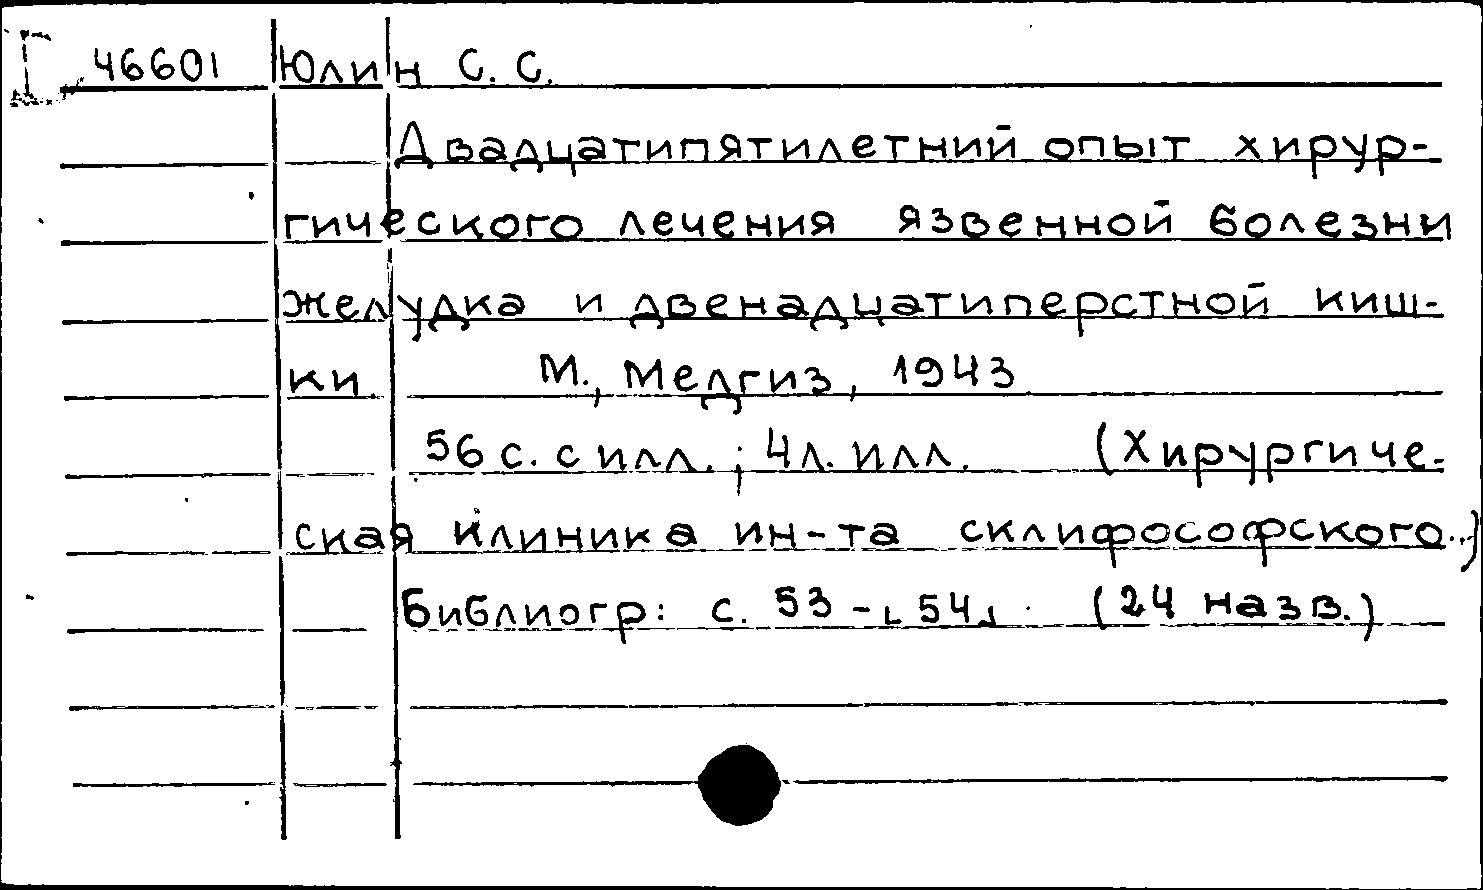 I 46601 Юлин С. С.
Двадцатипятилетний опыт хирур-
гического лечения язвенной болезни
желудка и двенадцатиперстной киш-
ки М., Медгиз, 1943
56 с. с илл.; 4 л. илл. (Хирургиче-
ская клиника ин-та склифософского..)
Библиогр: с. 53 - [54] (24 назв.)